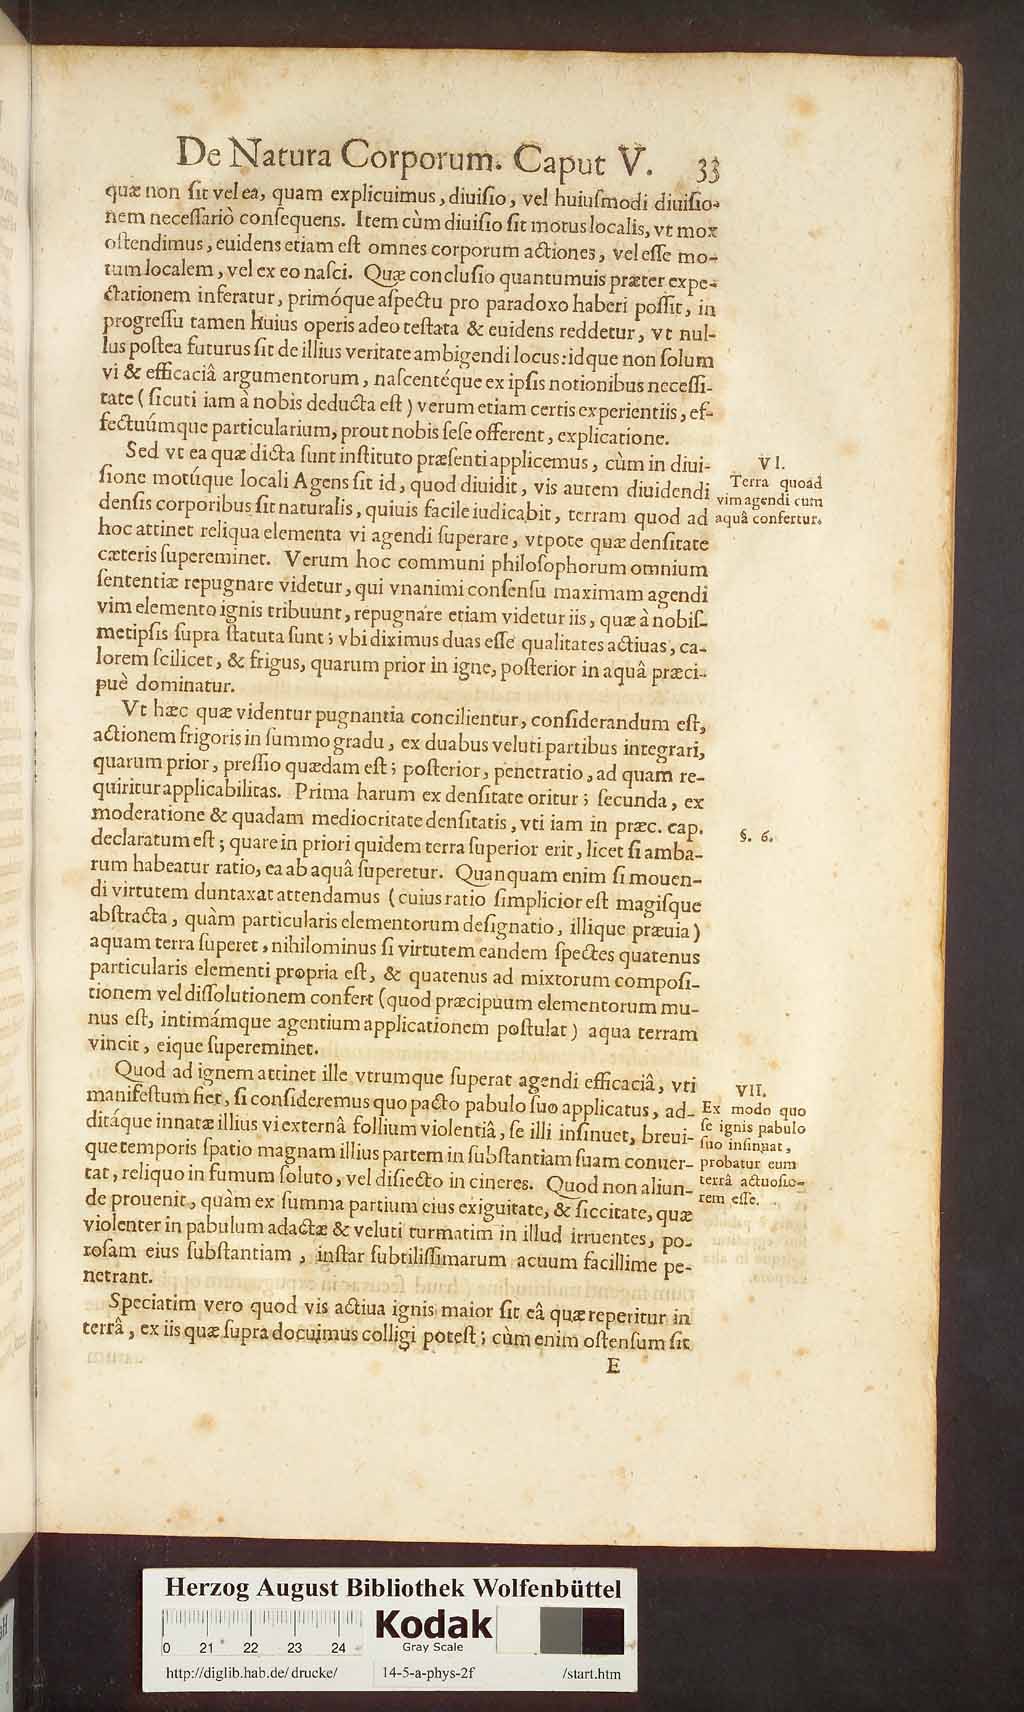 De Natura Corporum. Caput V. 33
quæ non ſit vel ea, quam explicuimus, diuiſio, vel huiuſmodi diuiſio-
nem neceſſariò conſequens. Item cùm diuiſio ſit motus localis, vt mox
oſtendimus, euidens etiam eſt omnes corporum actiones, vel eſſe mo-
tum localem, vel ex eo naſci. Quæ concluſio quantumuis præter expe-
ctationem inferatur, primóque aſpectu pro paradoxo haberi poſſit, in
progreſſu tamen huius operis adeo teſtata & euidens reddetur, vt nul-
lus poſtea futurus ſit de illius veritate ambigendi locus: idque non ſolum
vi & efficaciâ argumentorum, naſcentéque ex ipſis notionibus neceſſi-
tate (ſicuti iam à nobis deducta eſt) verum etiam certis experientiis, ef-
fectuúmque particularium, prout nobis ſeſe offerent, explicatione.
Sed vt ea quæ dicta ſunt inſtituto præſenti applicemus, cùm in diui-
ſione motúque locali Agens ſit id, quod diuidit, vis autem diuidendi
denſis corporibus ſit naturalis, quiuis facile iudicabit, terram quod ad
hoc attinet reliqua elementa vi agendi ſuperare, vtpote quæ denſitate
cæteris ſupereminet. Verum hoc communi philoſophorum omnium
ſententiæ repugnare videtur, qui vnanimi conſenſu maximam agendi
vim elemento ignis tribuunt, repugnare etiam videtur iis, quæ à nobiſ-
metipſis ſupra ſtatuta ſunt; vbi diximus duas eſſe qualitates actiuas, ca-
lorem ſcilicet, & frigus, quarum prior in igne, poſterior in aquâ præci-
puè dominatur.
VI.
Terra quoad
vim agendi cum
aquâ confertur.
Vt hæc quæ videntur pugnantia concilientur, conſiderandum eſt,
actionem frigoris in ſummo gradu, ex duabus veluti partibus integrari,
quarum prior, preſſio quædam eſt; poſterior, penetratio, ad quam re-
quiritur applicabilitas. Prima harum ex denſitate oritur; ſecunda, ex
moderatione & quadam mediocritate denſitatis, vti iam in præc. cap.
declaratum eſt; quare in priori quidem terra ſuperior erit, licet ſi amba-
rum habeatur ratio, ea ab aquâ ſuperetur. Quanquam enim ſi mouen-
di virtutem duntaxat attendamus (cuius ratio ſimplicior eſt magiſque
abſtracta, quàm particularis elementorum deſignatio, illique præuia)
aquam terra ſuperet, nihilominus ſi virtutem eandem ſpectes quatenus
particularis elementi propria eſt, & quatenus ad mixtorum compoſi-
tionem vel diſſolutionem confert (quod præcipuum elementorum mu-
nus eſt, intimámque agentium applicationem poſtulat) aqua terram
vincit, eique ſupereminet.
§. 6.
Quod ad ignem attinet ille vtrumque ſuperat agendi efficaciâ, vti
manifeſtum fiet, ſi conſideremus quo pacto pabulo ſuo applicatus, ad-
ditáque innatæ illius vi externâ follium violentiâ, ſe illi inſinuet, breui-
que temporis ſpatio magnam illius partem in ſubſtantiam ſuam conuer-
tat, reliquo in fumum ſoluto, vel diſiecto in cineres. Quod non aliun-
de prouenit, quàm ex ſumma partium eius exiguitate, & ſiccitate, quæ
violenter in pabulum adactæ & veluti turmatim in illud irruentes, po-
roſam eius ſubſtantiam, inſtar ſubtiliſſimarum acuum facillime pe-
netrant.
VII.
Ex modo quo
ſe ignis pabulo
ſuo inſinuat,
probatur eum
terrâ actuoſio-
rem eſſe.
Speciatim vero quod vis actiua ignis maior ſit eâ quæ reperitur in
terrâ, ex iis quæ ſupra docuimus colligi poteſt; cùm enim oſtenſum ſit
E
Herzog August Bibliothek Wolfenbüttel
0 21 22 23 24
Kodak
Gray Scale
http://diglib.hab.de/drucke/ 14-5-a-phys-2f /start.htm